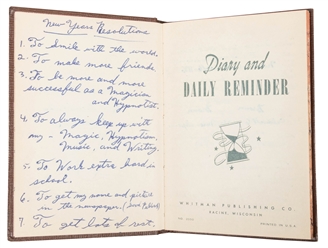 New Years Resolutions
1. To smile with the world.
2. To make more friends.
3. To be more and more
successful as a Magician
and Hypnotist.
4. To always keep up with
my - Magic, Hypnotism,
Music, and Writing.
5. To Work extra hard in
school.
6. To get my name and picture
in the newspaper.
7 To get lots of rest.
Diary and
DAILY REMINDER
WHITMAN PUBLISHING CO.
RACINE, WISCONSIN
PRINTED IN U.S.A.